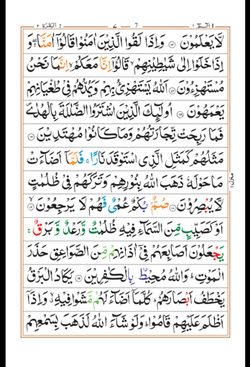 لَّا یَعْلَمُوْنَ ۝ وَاِذَا لَقُوا الَّذِیْنَ اٰمَنُوْا قَالُوْۤا اٰمَنَّا ۖۚ وَ
اِذَا خَلَوْا اِلٰی شَیٰطِیْنِهِمْ ۙ قَالُوْۤا اِنَّا مَعَكُمْ ۙ اِنَّمَا نَحْنُ
مُسْتَهْزِءُوْنَ ۝ اَللّٰهُ یَسْتَهْزِئُ بِهِمْ وَیَمُدُّهُمْ فِیْ طُغْیَانِهِمْ
یَعْمَهُوْنَ ۝ اُولٰٓئِكَ الَّذِیْنَ اشْتَرَوُا الضَّلٰلَةَ بِالْهُدٰی ۪
فَمَا رَبِحَتْ تِّجَارَتُهُمْ وَمَا كَانُوْا مُهْتَدِیْنَ ۝
مَثَلُهُمْ كَمَثَلِ الَّذِی اسْتَوْقَدَ نَارًا ۚ فَلَمَّاۤ اَضَآءَتْ
مَا حَوْلَهٗ ذَهَبَ اللّٰهُ بِنُوْرِهِمْ وَتَرَكَهُمْ فِیْ ظُلُمٰتٍ
لَّا یُبْصِرُوْنَ ۝ صُمٌّۢ بُكْمٌ عُمْیٌ فَهُمْ لَا یَرْجِعُوْنَ ۝
اَوْ كَصَیِّبٍ مِّنَ السَّمَآءِ فِیْهِ ظُلُمٰتٌ وَّرَعْدٌ وَّبَرْقٌ ۚ
یَجْعَلُوْنَ اَصَابِعَهُمْ فِیْۤ اٰذَانِهِمْ مِّنَ الصَّوَاعِقِ حَذَرَ
الْمَوْتِ ؕ وَاللّٰهُ مُحِیْطٌۢ بِالْكٰفِرِیْنَ ۝ یَكَادُ الْبَرْقُ
یَخْطَفُ اَبْصَارَهُمْ ؕ كُلَّمَاۤ اَضَآءَ لَهُمْ مَّشَوْا فِیْهِ ۙ وَاِذَاۤ
اَظْلَمَ عَلَیْهِمْ قَامُوْا ؕ وَلَوْ شَآءَ اللّٰهُ لَذَهَبَ بِسَمْعِهِمْ